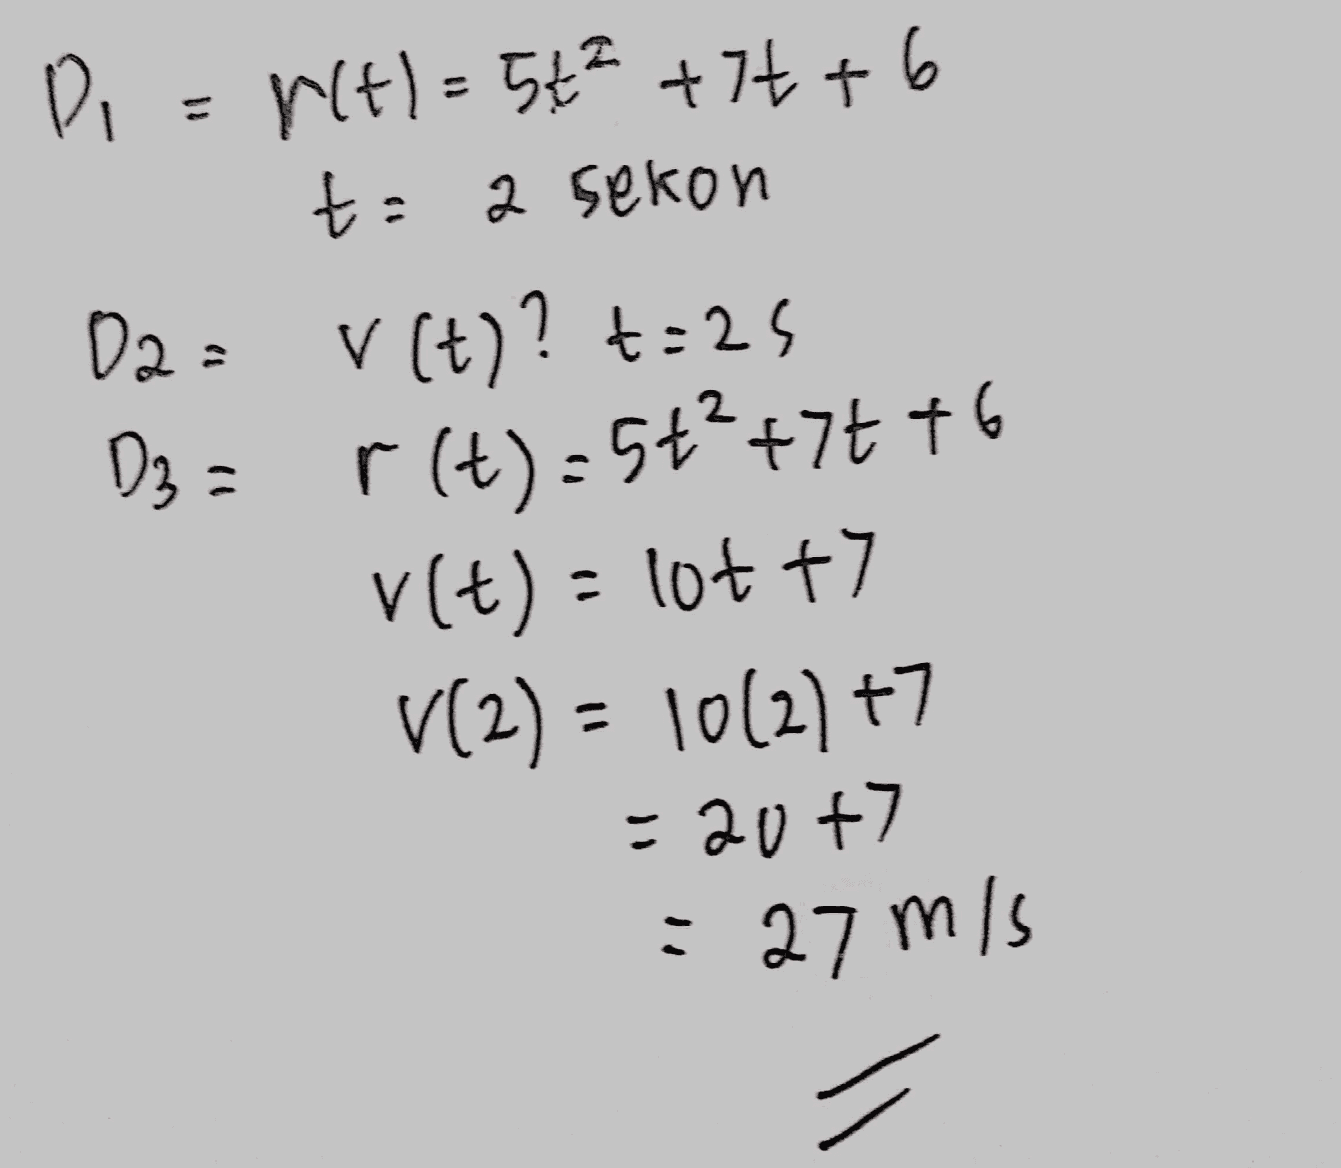 D₁ = r(t) = 5t² + 7t + 6
t = 2 sekon
D2 = v (t)? t = 2 s
D3 = r (t) = 5t² + 7t + 6
v(t) = 10t + 7
v(2) = 10(2) + 7
= 20 + 7
= 27 m/s